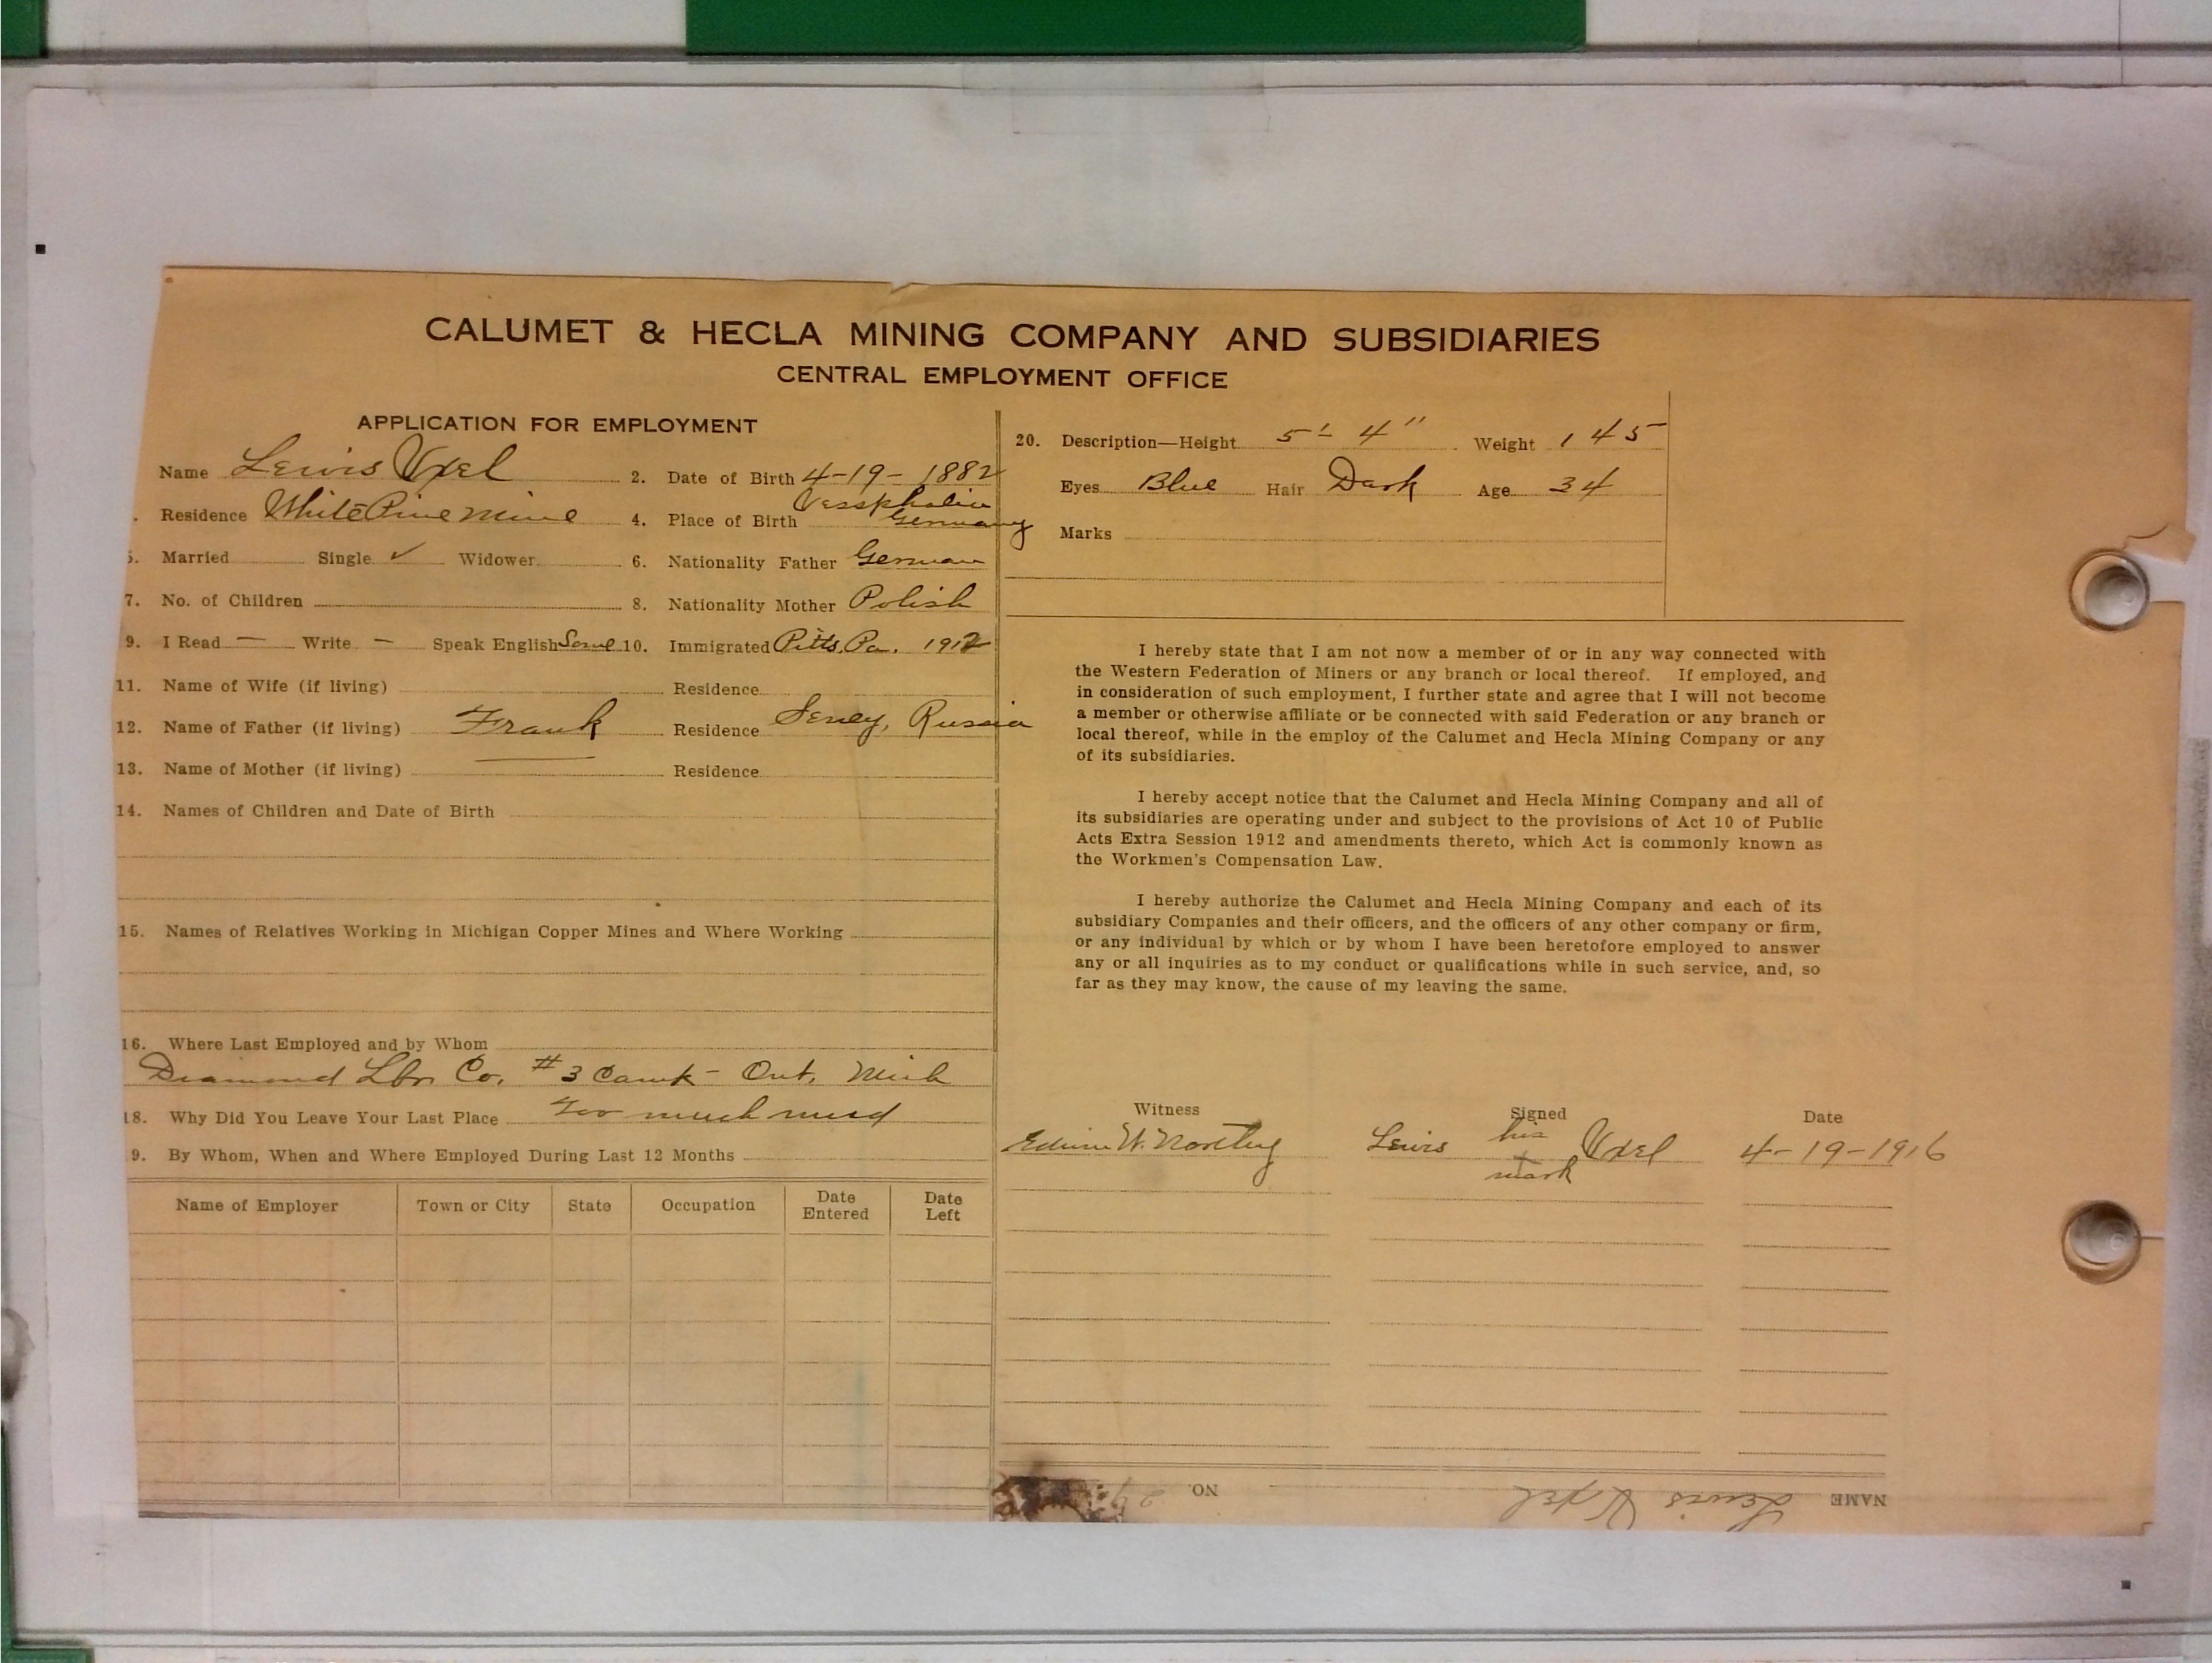 CALUMET & HECLA MINING COMPANY AND SUBSIDIARIES
CENTRAL EMPLOYMENT OFFICE
APPLICATION FOR EMPLOYMENT
Name Lewis Uxel 2. Date of Birth 4-19-1882
Residence White Pine Mine 4. Place of Birth Vesspholin Germany
5. Married Single ✓ Widower 6. Nationality Father German
7. No. of Children 8. Nationality Mother Polish
9. I Read — Write — Speak English Some 10. Immigrated Pitts. Pa. 1912
11. Name of Wife (if living) Residence
12. Name of Father (if living) Frank Residence Seney, Russia
13. Name of Mother (if living) — Residence
14. Names of Children and Date of Birth
15. Names of Relatives Working in Michigan Copper Mines and Where Working
16. Where Last Employed and by Whom
Diamond Lbr Co. #3 Camk - Ont. Mich
18. Why Did You Leave Your Last Place Too much mud
9. By Whom, When and Where Employed During Last 12 Months
Name of Employer Town or City State Occupation Date Entered Date Left
20. Description—Height 5' 4" Weight 145
Eyes Blue Hair Dark Age 34
Marks
I hereby state that I am not now a member of or in any way connected with
the Western Federation of Miners or any branch or local thereof. If employed, and
in consideration of such employment, I further state and agree that I will not become
a member or otherwise affiliate or be connected with said Federation or any branch or
local thereof, while in the employ of the Calumet and Hecla Mining Company or any
of its subsidiaries.
I hereby accept notice that the Calumet and Hecla Mining Company and all of
its subsidiaries are operating under and subject to the provisions of Act 10 of Public
Acts Extra Session 1912 and amendments thereto, which Act is commonly known as
the Workmen's Compensation Law.
I hereby authorize the Calumet and Hecla Mining Company and each of its
subsidiary Companies and their officers, and the officers of any other company or firm,
or any individual by which or by whom I have been heretofore employed to answer
any or all inquiries as to my conduct or qualifications while in such service, and, so
far as they may know, the cause of my leaving the same.
Witness Signed Date
Edwin W. Lewis his x mark Uxel 4-19-1916
NAME Lewis Uxel NO.